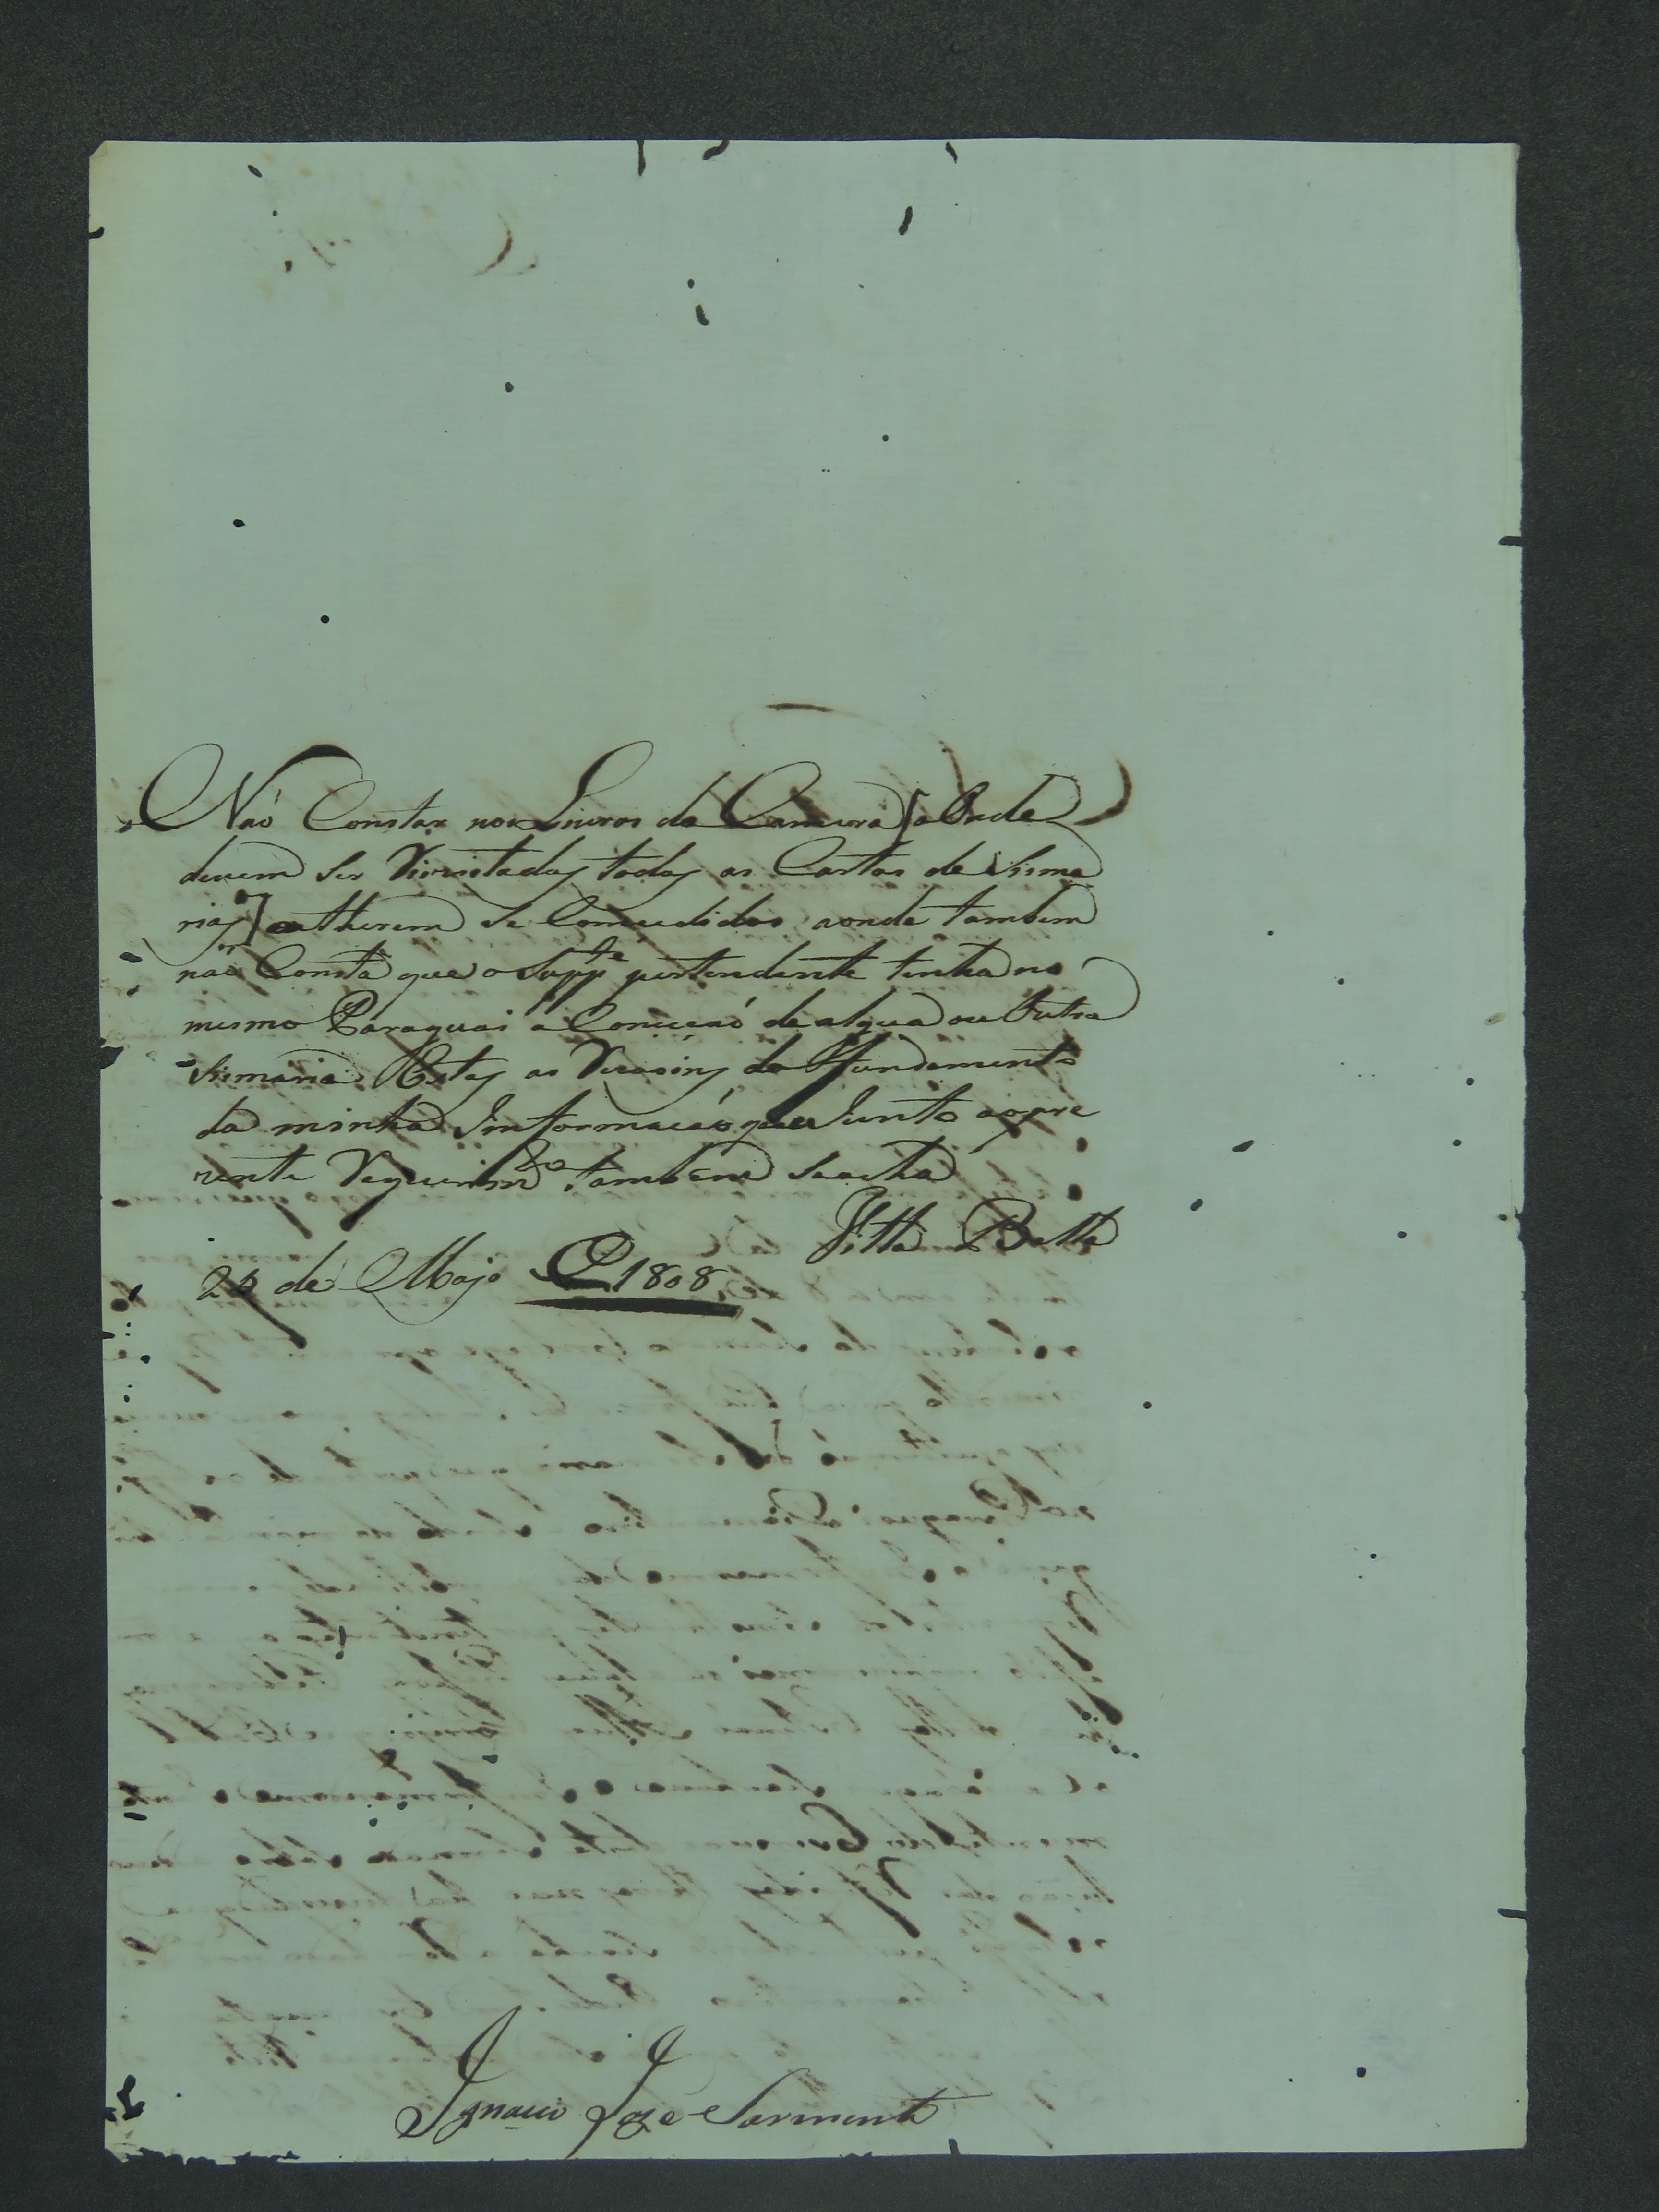 Naó Constar nos Livros da Camera [aOnde
devem ser Rizistadas todas as Cartas de Sisma
rias] ee therem se Concedidos aonde tambem
naó Consta que o Supp.te pertendente tenha no
mesmo Paraguai a Conceçaó de algua ou Outra
Sismaria. Estas as Rezoins do ffundamento
da minha Informaçáo que Junto ao pre
zente Requerim.to tambem Seacha
Villa Bella
26 de Majo D 1808
Ignacio Joze Sarmento